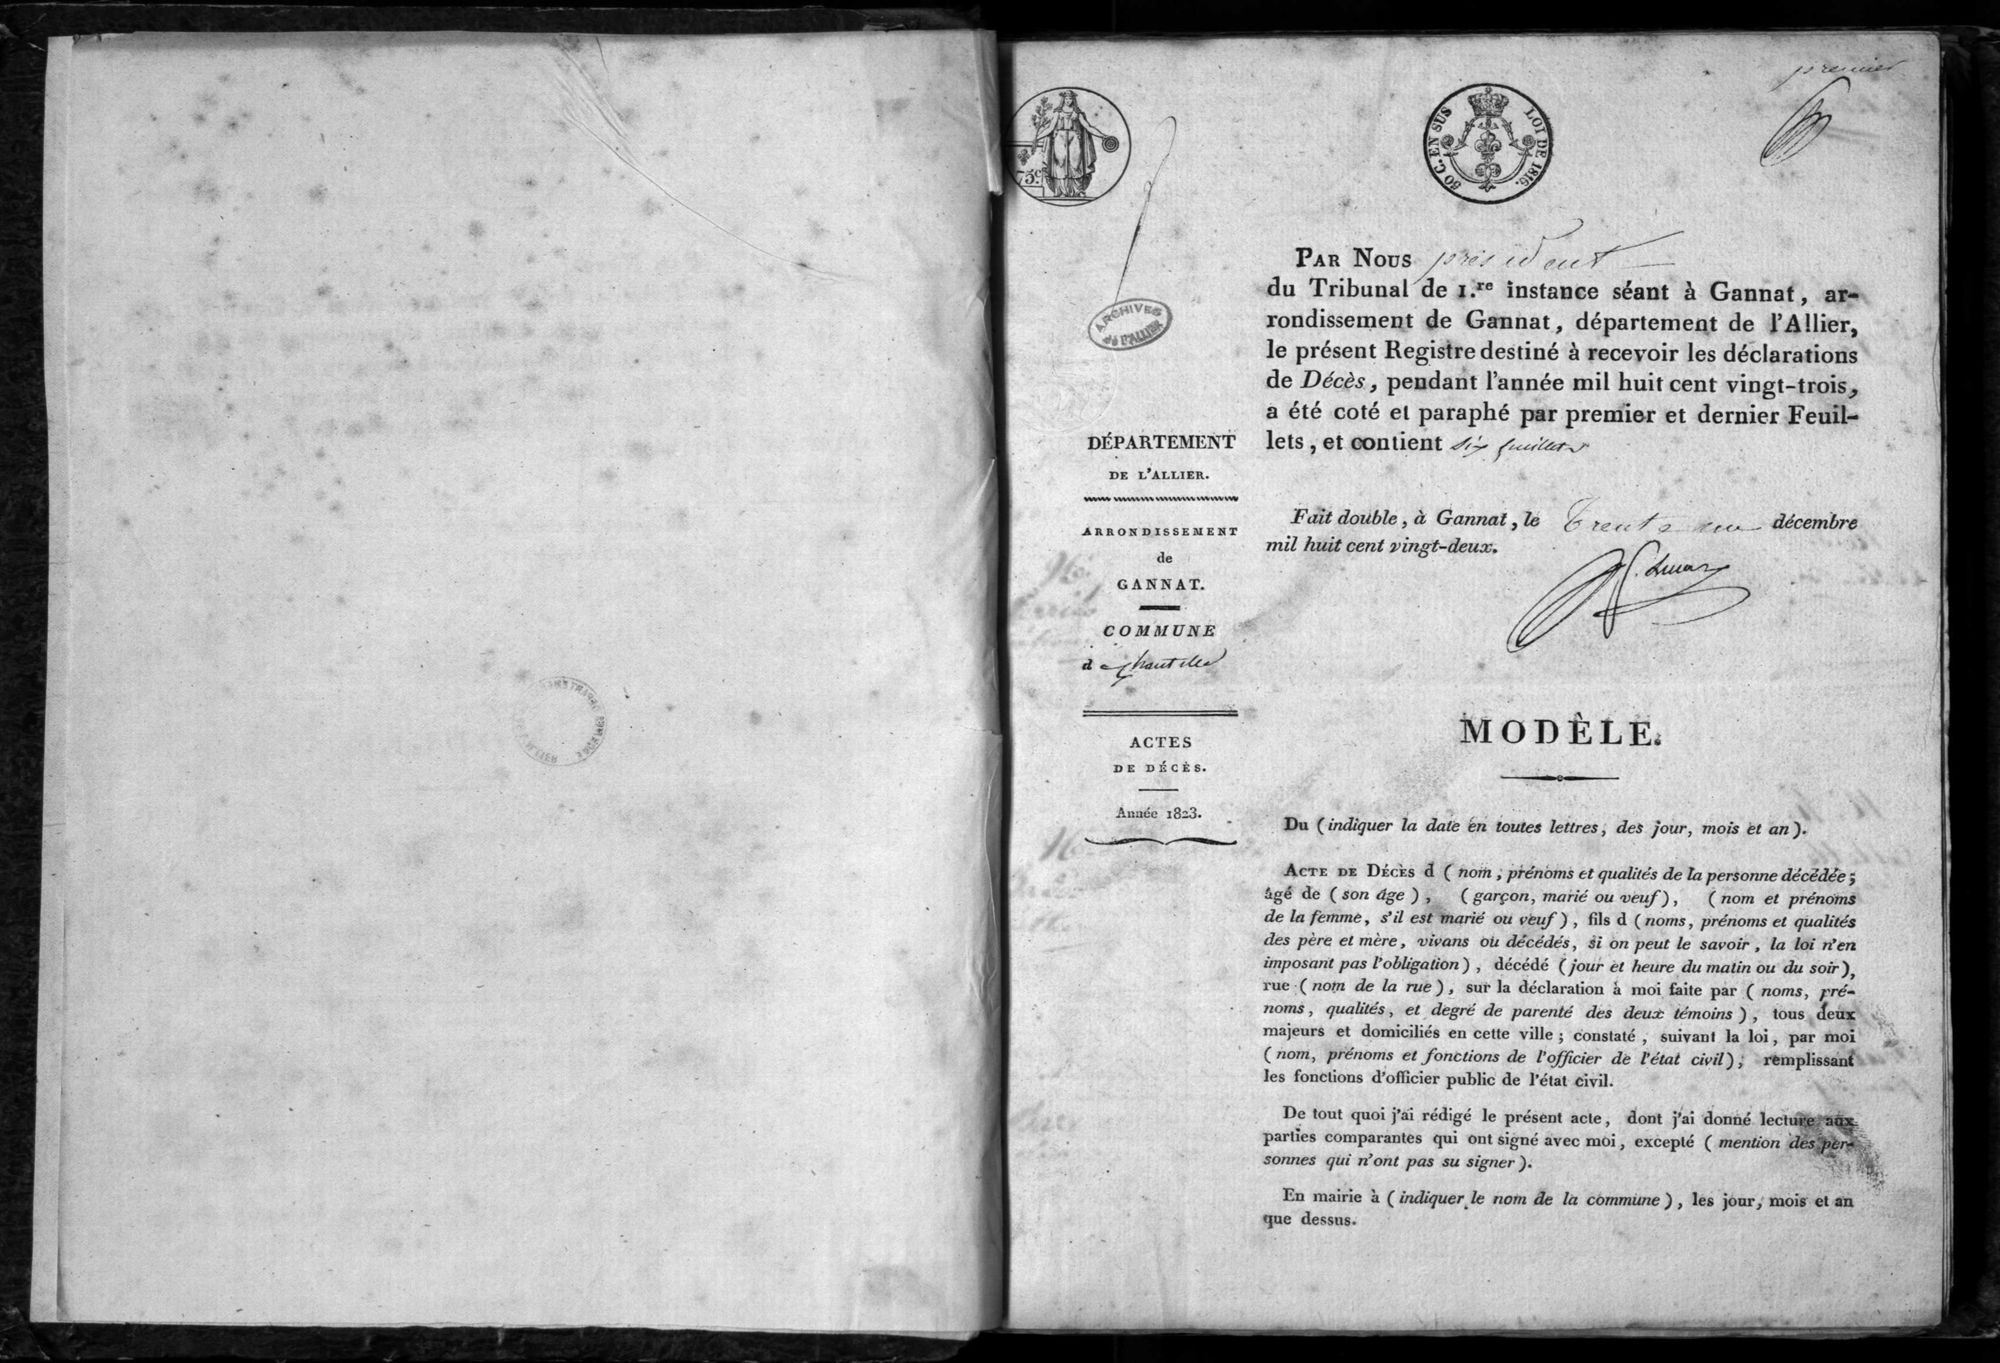 premier
75 c.
50 C. EN SUS LOI DE 1816.
ARCHIVES
DE L'ALLIER
PAR NOUS président
du Tribunal de 1.re instance séant à Gannat, ar-
rondissement de Gannat, département de l'Allier,
le présent Registre destiné à recevoir les déclarations
de Décès, pendant l'année mil huit cent vingt-trois,
a été coté et paraphé par premier et dernier Feuil-
lets, et contient six feuillets
Fait double, à Gannat, le Trente un décembre
mil huit cent vingt-deux.
DÉPARTEMENT
DE L'ALLIER.
ARRONDISSEMENT
de
GANNAT.
COMMUNE
d Chantelle
ACTES
DE DÉCÈS.
Année 1823.
MODÈLE.
Du (indiquer la date en toutes lettres, des jour, mois et an).
ACTE DE DÉCÈS d (nom, prénoms et qualités de la personne décédée;
âgé de (son âge), (garçon, marié ou veuf), (nom et prénoms
de la femme, s'il est marié ou veuf), fils d (noms, prénoms et qualités
des père et mère, vivans ou décédés, si on peut le savoir, la loi n'en
imposant pas l'obligation), décédé (jour et heure du matin ou du soir),
rue (nom de la rue), sur la déclaration à moi faite par (noms, pré-
noms, qualités, et degré de parenté des deux témoins), tous deux
majeurs et domiciliés en cette ville; constaté, suivant la loi, par moi
(nom, prénoms et fonctions de l'officier de l'état civil), remplissant
les fonctions d'officier public de l'état civil.
De tout quoi j'ai rédigé le présent acte, dont j'ai donné lecture aux
parties comparantes qui ont signé avec moi, excepté (mention des per-
sonnes qui n'ont pas su signer).
En mairie à (indiquer le nom de la commune), les jour, mois et an
que dessus.